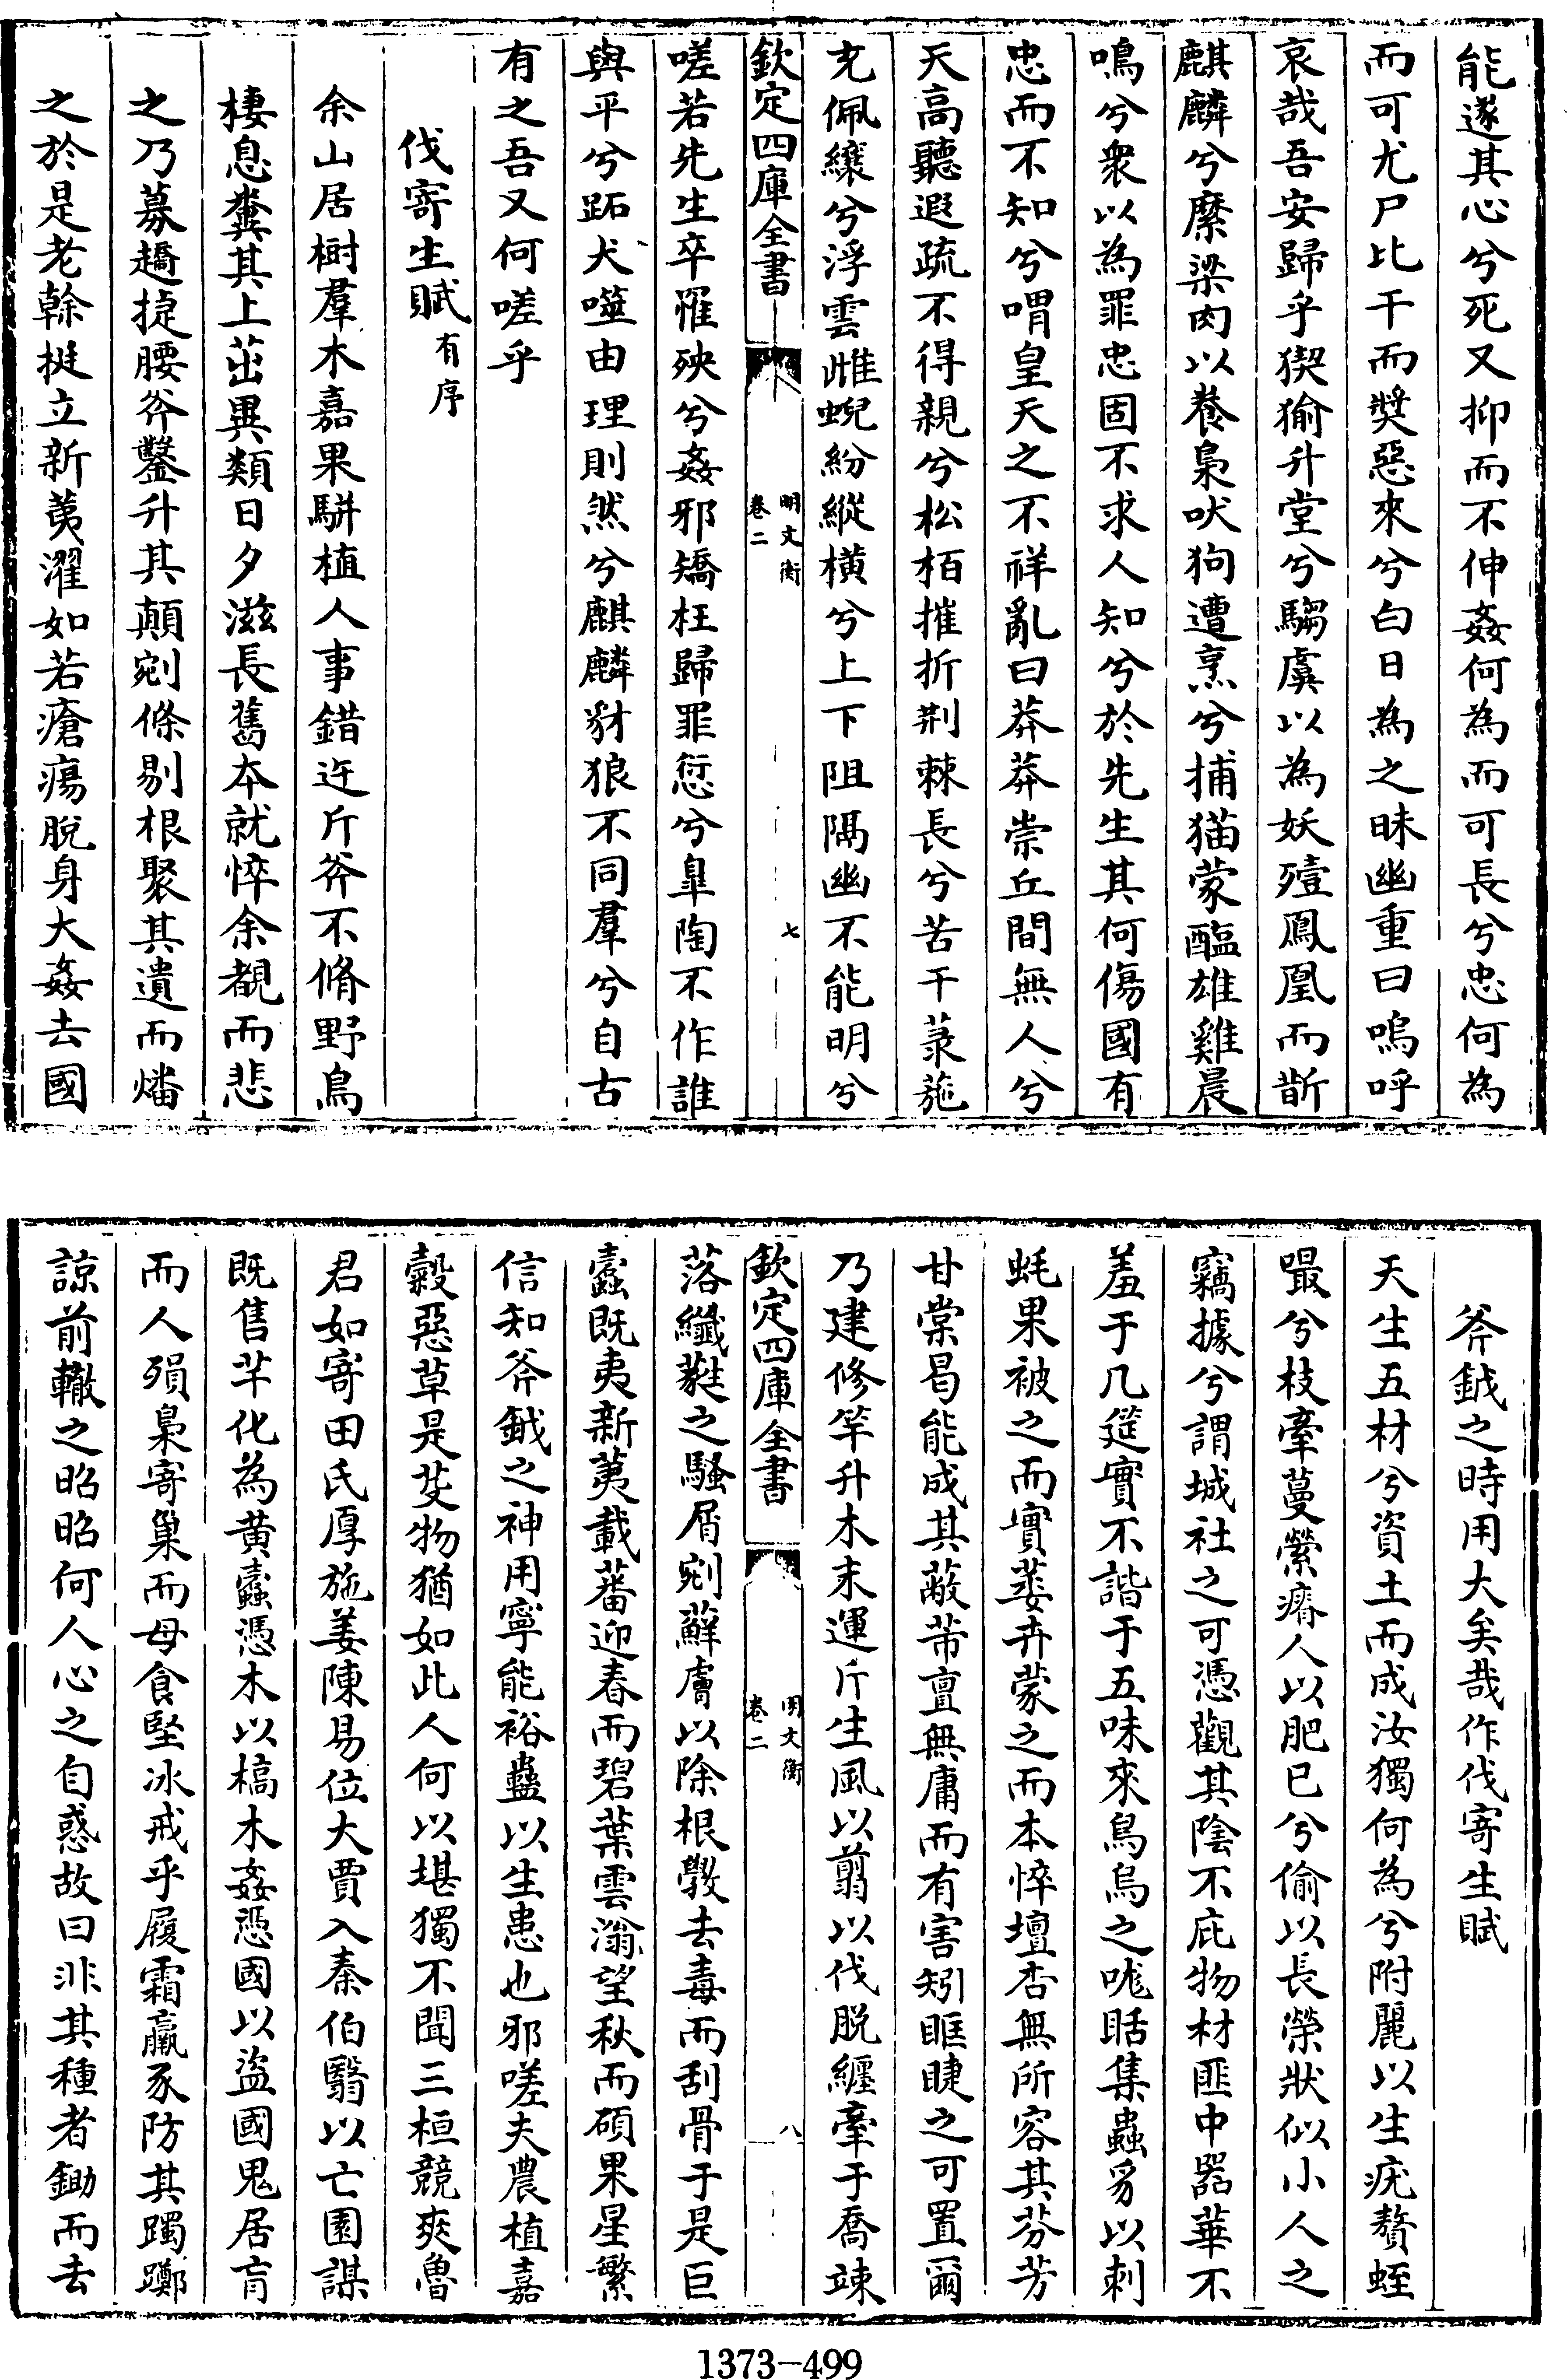 能遂其心兮死又抑而不伸姦何為而可長兮忠何為
而可尤尸比干而奬惡來兮白日為之昧幽重曰嗚呼
哀哉吾安歸乎猰㺄升堂兮騶虞以為妖殪鳳凰而斮
麒麟兮縻梁肉以養梟吠狗遭烹兮捕猫蒙醢雄雞晨
鳴兮衆以為罪忠固不求人知兮於先生其何傷國有
忠而不知兮喟皇天之不祥亂曰莽莽崇丘間無人兮
天高聽遐疏不得親兮松栢摧折荆棘長兮苦干菉葹
充佩纕兮浮雲雌蜺紛縱橫兮上下阻隔幽不能明兮
欽定四庫全書 明文衡 卷二 七
嗟若先生卒罹殃兮姦邪矯枉歸罪愆兮臯陶不作誰
與平兮跖犬噬由理則然兮麒麟豺狼不同羣兮自古
有之吾又何嗟乎
伐寄生賦有序
余山居樹羣木嘉果駢植人事錯迕斤斧不脩野鳥
棲息糞其上茁異類日夕滋長舊本就悴余覩而悲
之乃募趫捷腰斧鑿升其顛剜條剔根聚其遺而燔
之於是老榦挺立新荑濯如若瘡瘍脫身大姦去國
斧鉞之時用大矣哉作伐寄生賦
天生五材兮資土而成汝獨何為兮附麗以生疣贅蛭
嘬兮枝牽蔓縈瘠人以肥己兮偷以長榮狀似小人之
竊據兮謂城社之可憑觀其陰不庇物材匪中器華不
羞于几筵實不諧于五味來鳥烏之咙聒集蟲豸以刺
蚝果被之而實萎卉蒙之而本悴壇杏無所容其芬芳
甘棠曷能成其蔽芾亶無庸而有害矧眶睫之可置爾
乃建修竿升木末運斤生風以翦以伐脱纒牽于喬竦
欽定四庫全書 明文衡 卷二 八
落纖蕤之騷屑剜蘚膚以除根斁去毒而刮骨于是巨
蠹既夷新荑載蕃迎春而碧葉雲滃望秋而碩果星繁
信知斧鉞之神用寧能裕蠱以生患也邪嗟夫農植嘉
穀惡草是芟物猶如此人何以堪獨不聞三桓競爽魯
君如寄田氏厚施姜陳易位大賈入秦伯翳以亡園謀
既售芊化為黃蠹憑木以槁木姦憑國以盜國鬼居肓
而人殞梟寄巢而母食堅冰戒乎履霜羸豕防其蹢躅
諒前轍之昭昭何人心之自惑故曰非其種者鋤而去
1373-499